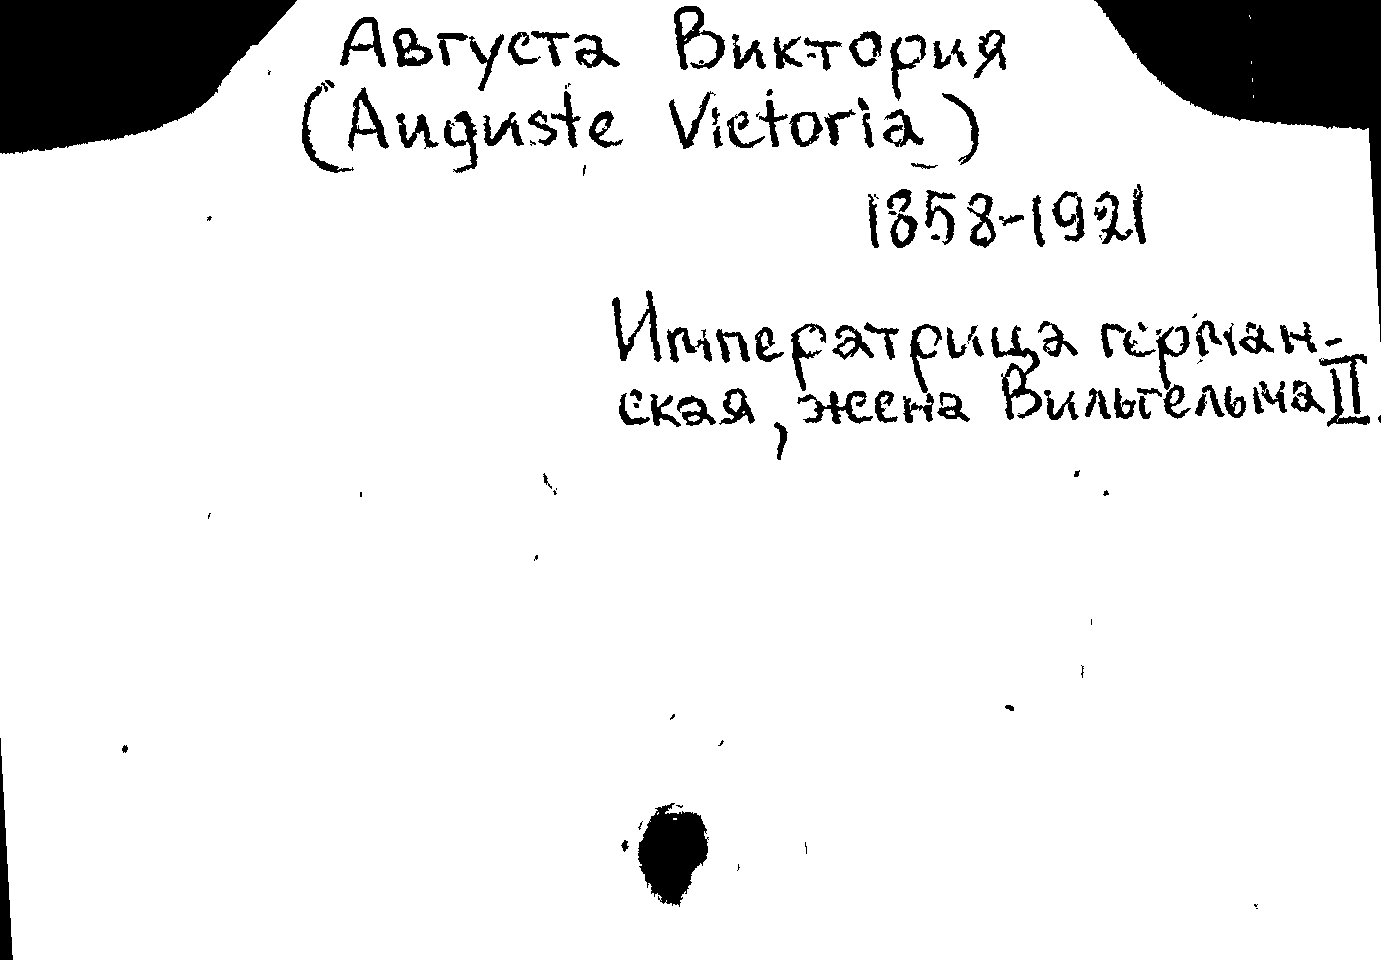 Августа Виктория
(Auguste Victoria)
1858-1921
Императрица герман-
ская, жена Вильгельма II.